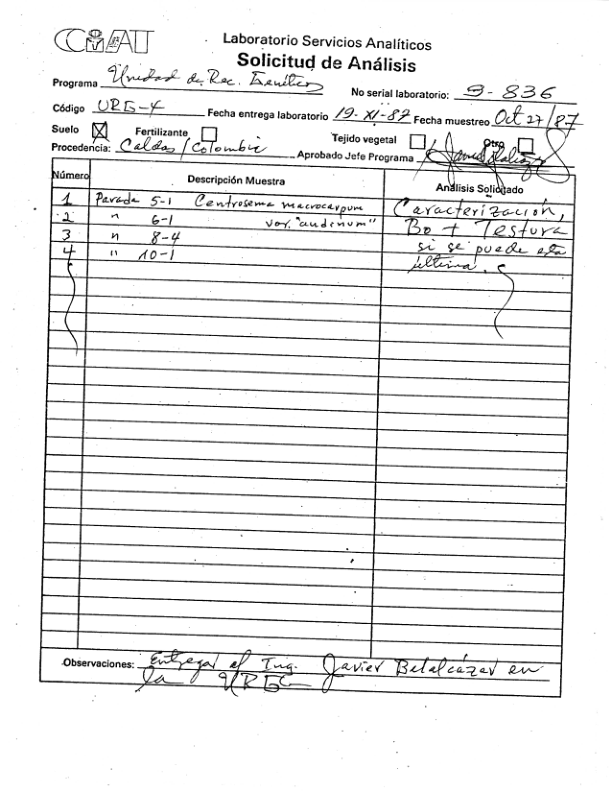 CIAT
Laboratorio Servicios Analíticos
Solicitud de Análisis
Programa Unidad de Rec. Genéticos No serial laboratorio: S-836
Código URG-4 Fecha entrega laboratorio 19-XI-87 Fecha muestreo Oct 27/87
Suelo Fertilizante Tejido vegetal Otro
Procedencia: Caldas/Colombia Aprobado Jefe Programa
Número Descripción Muestra Análisis Solicitado
1 Parada 5-1 Centrosema macrocarpum Caracterización,
2 " 6-1 var. "andinum" Bo + Testura
3 " 8-4 si se puede esta
4 " 10-1 última.
Observaciones: Entregar al Ing. Javier Belalcázar en
la URG